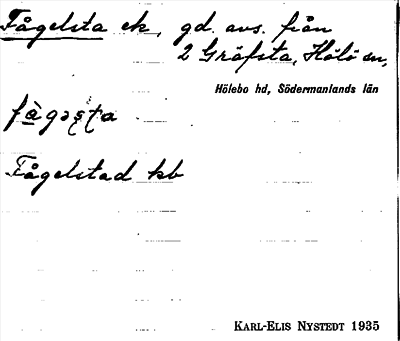 Fågelsta ek, gd. avs. från
2 Gräfsta, Hölö sn,
Hölebo hd, Södermanlands län
fàgəʂʈa
Fågelstad kb
KARL-ELIS NYSTEDT 1935